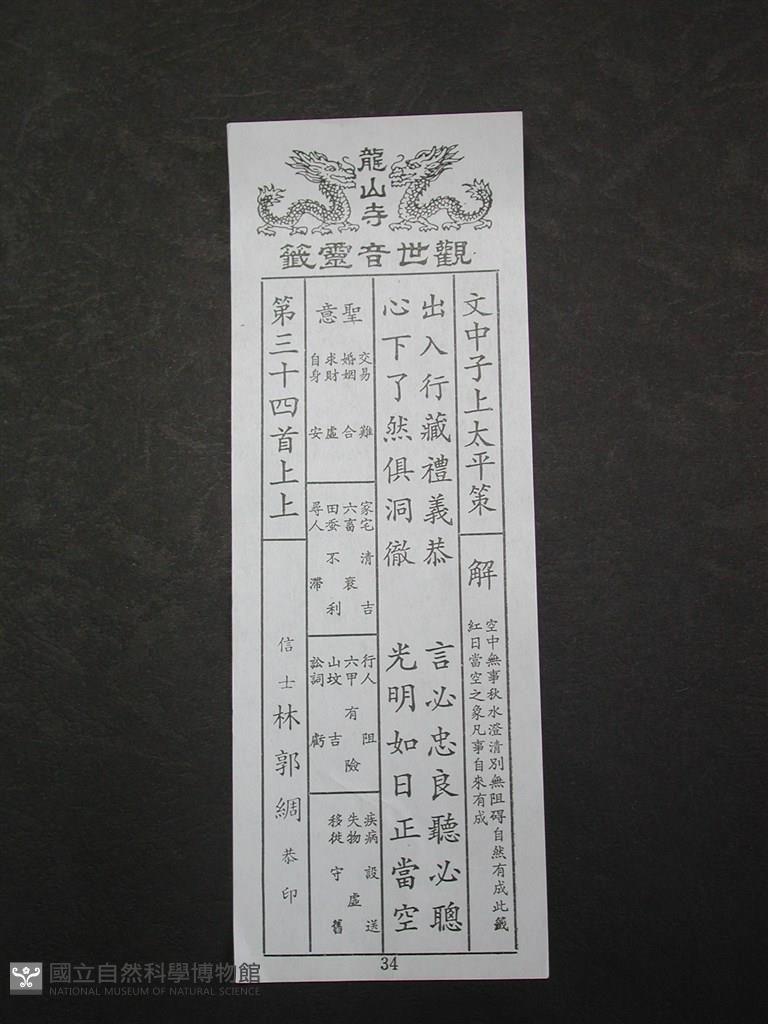 龍山寺
觀世音靈籤
文中子上太平策
解
空中無事秋水澄清別無阻碍自然有成此籤
紅日當空之象凡事自來有成
出入行藏禮義恭 言必忠良聽必聰
心下了然俱洞徹 光明如日正當空
聖意
交易 難
婚姻 合
求財 虛
自身 安
家宅 清吉
六畜 衰
田蚕 不利
尋人 滯
行人 阻
六甲 有險
山墳 吉
訟詞 虧
疾病 設送
失物 虛
移徙 守舊
第三十四首上上
信士 林郭綢 恭印
34
國立自然科學博物館
NATIONAL MUSEUM OF NATURAL SCIENCE